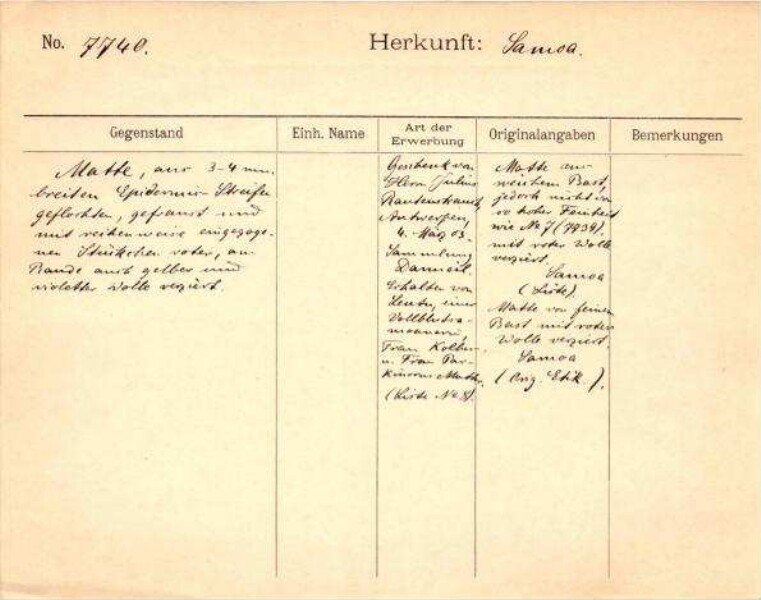 No. 7740.
Herkunft: Samoa.
Gegenstand
Einh. Name
Art der Erwerbung
Originalangaben
Bemerkungen
Matte, aus 3-4 mm.
breiten Epidermis-Streifen
geflochten, gefranst und
mit reihenweise eingezoge-
nen Stückchen roter, am
Rande auch gelber und
violetter Wolle verziert.
Geschenk von
Herrn Julius
Rautenstrauch,
Antwerpen,
4. März 03.
Sammlung
Danneil.
Erhalten von
einer
Vollblutsa-
moanerin,
Frau Kolbe-
u. Frau Par-
kinsons Mutter.
(Liste No 8).
Matte aus
weichem Bast,
jedoch nicht von
so hoher Feinheit
wie No 7 (7739).
mit roter Wolle
verziert.
Samoa
(Liste).
Matte von feinem
Bast mit roter
Wolle verziert.
Samoa
(Orig. Etik.).